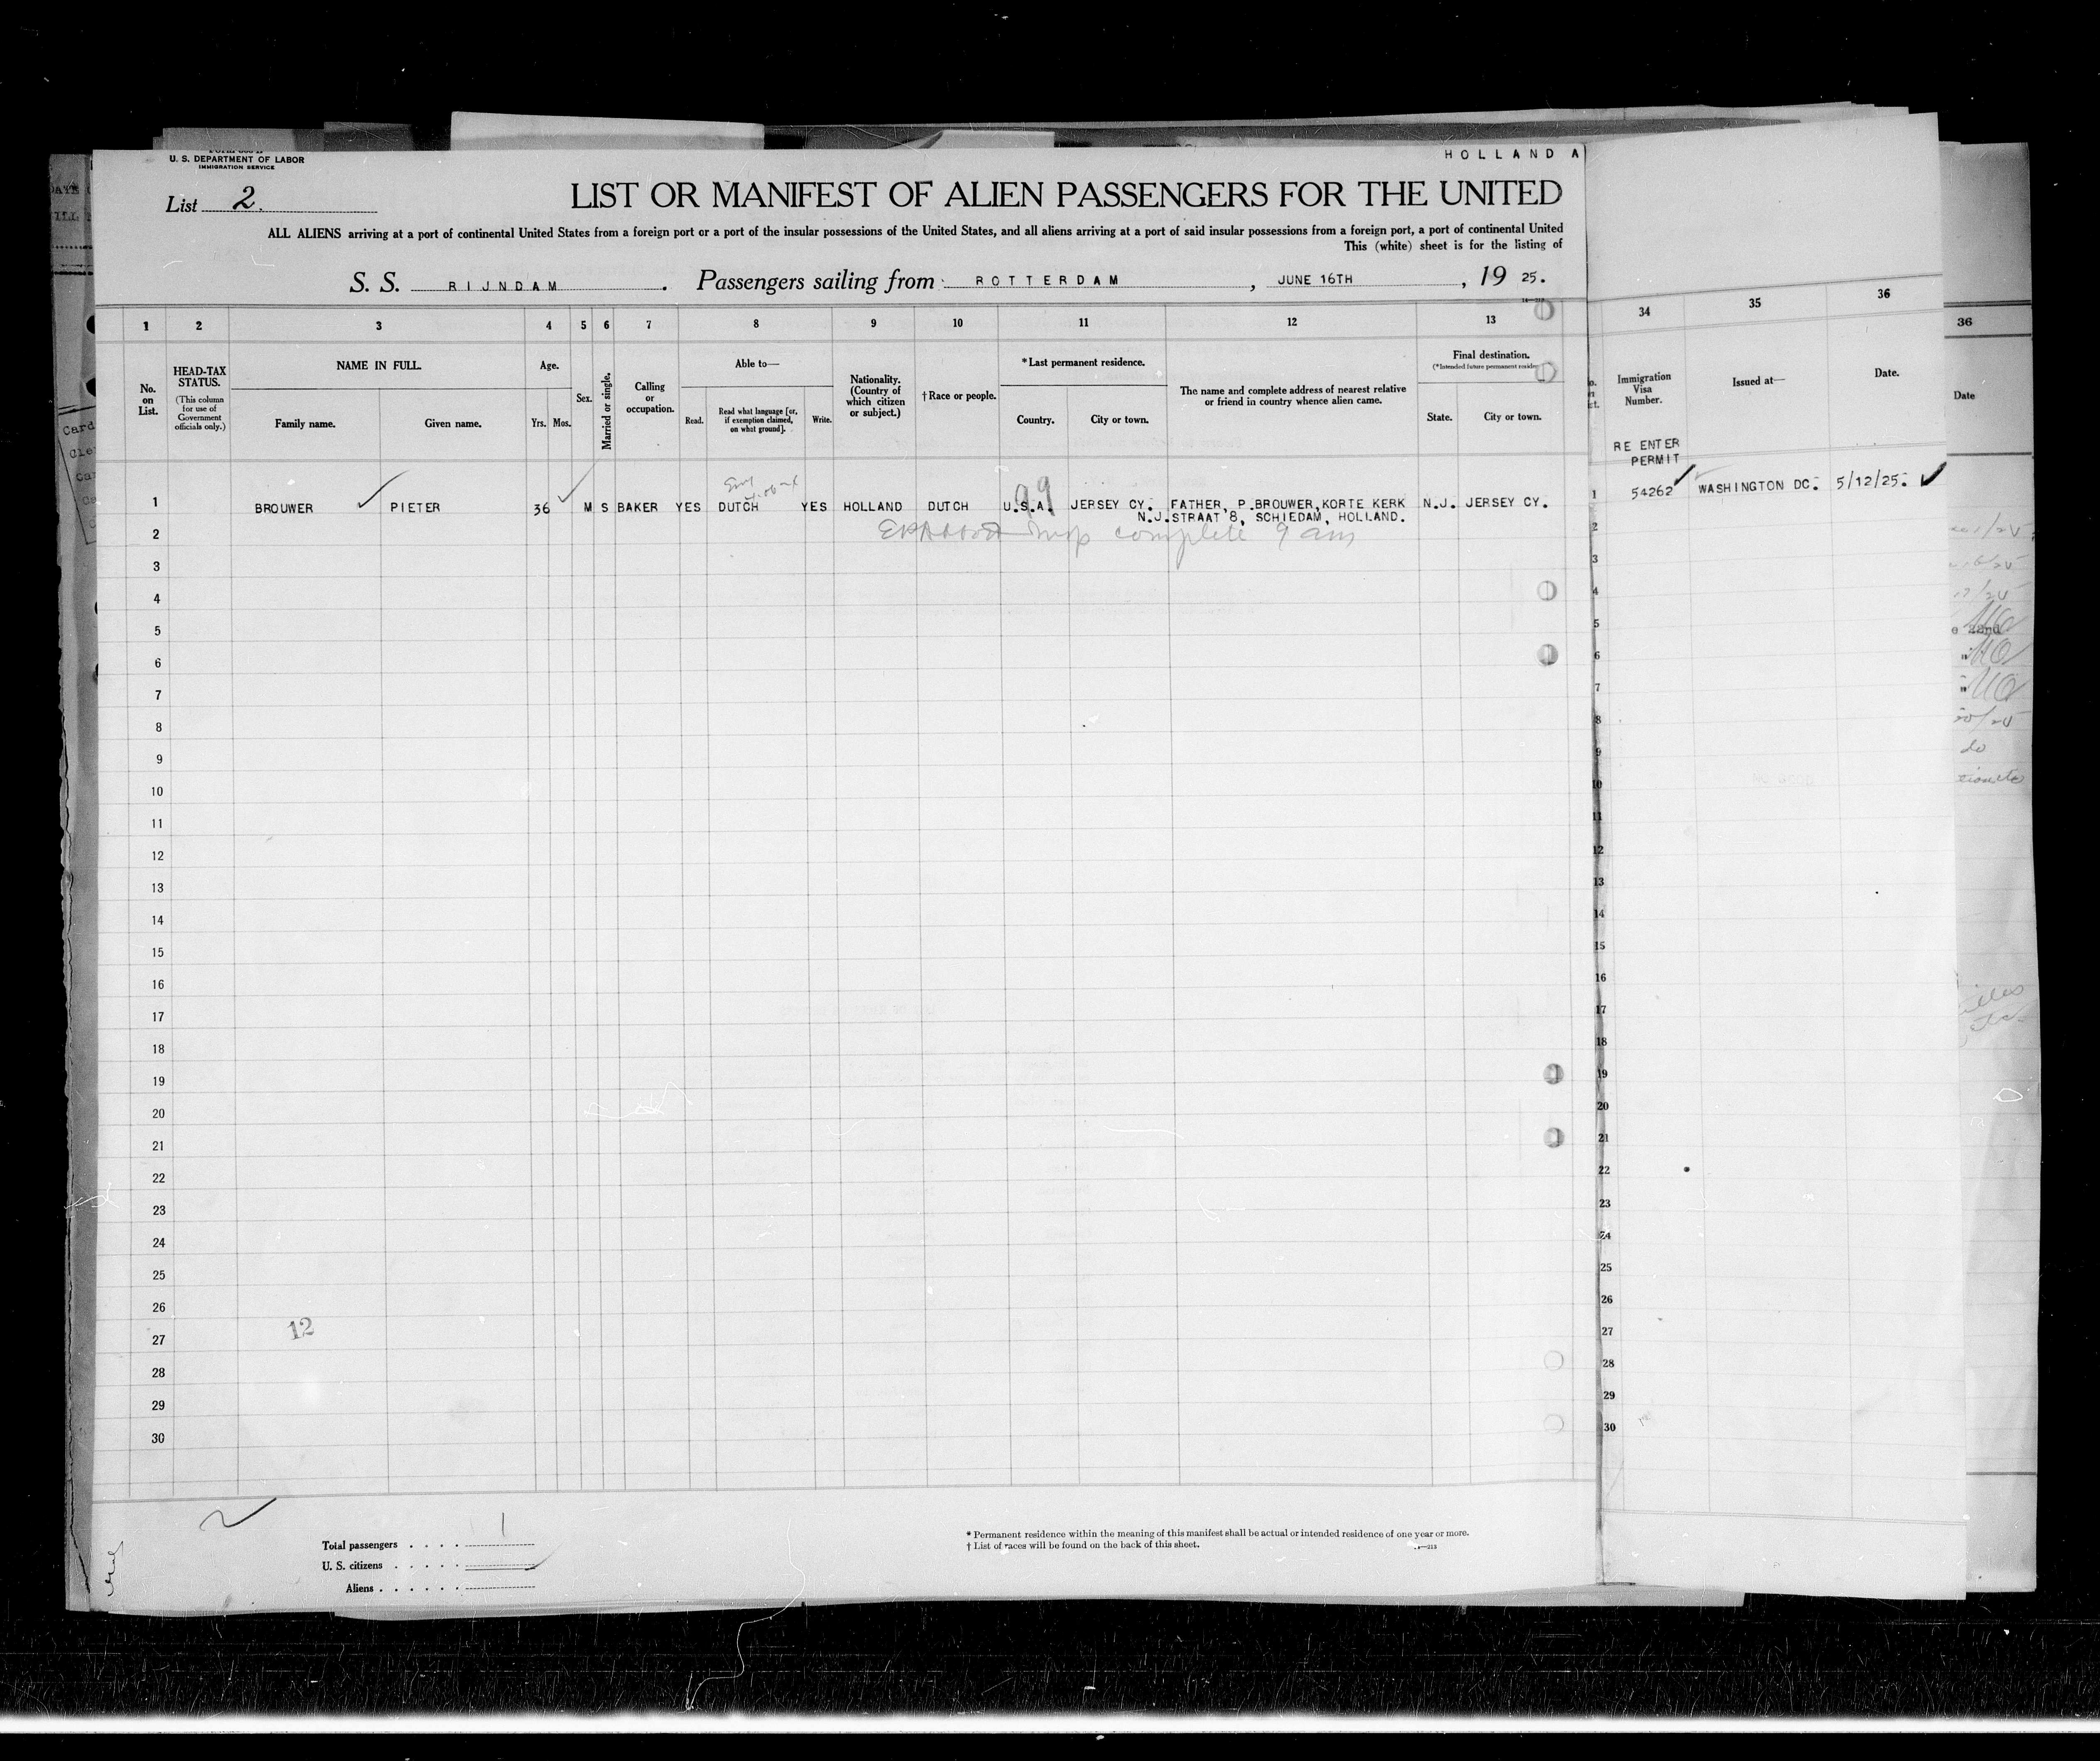 U. S. DEPARTMENT OF LABOR
IMMIGRATION SERVICE
HOLLAND A
List 2.
LIST OR MANIFEST OF ALIEN PASSENGERS FOR THE UNITED
ALL ALIENS arriving at a port of continental United States from a foreign port or a port of the insular possessions of the United States, and all aliens arriving at a port of said insular possessions from a foreign port, a port of continental United
This (white) sheet is for the listing of
S. S. RIJNDAM. Passengers sailing from ROTTERDAM, JUNE 16TH, 19 25.
1 2 3 4 5 6 7 8 9 10 11 12 13
No. on List.
HEAD-TAX STATUS.
(This column for use of Government officials only.)
NAME IN FULL.
Family name. Given name.
Age.
Yrs. Mos.
Sex.
Married or single.
Calling or occupation.
Able to—
Read. Read what language [or, if exemption claimed, on what ground]. Write.
Nationality. (Country of which citizen or subject.)
† Race or people.
* Last permanent residence.
Country. City or town.
The name and complete address of nearest relative or friend in country whence alien came.
Final destination.
(* Intended future permanent
State. City or town.
34 35 36
Immigration Visa Number.
Issued at—
Date.
36
Date
RE ENTER
PERMIT
1 BROUWER PIETER 36 M S BAKER YES DUTCH YES HOLLAND DUTCH U.S.A. JERSEY CY. FATHER, P.BROUWER,KORTE KERK N.J. JERSEY CY.
N.J. STRAAT 8, SCHIEDAM, HOLLAND.
99
1 54262 WASHINGTON DC. 5/12/25.
complete 9 am
2
3
4
5
6
7
8
9
10
11
12
13
14
15
16
17
18
19
20
21
22
23
24
25
26
27
28
29
30
12
2
3
4
5
6
7
8
9
10
11
12
13
14
15
16
17
18
19
20
21
22
23
24
25
26
27
28
29
30
Total passengers . . . . 1
U. S. citizens . . . . .
Aliens . . . . . .
* Permanent residence within the meaning of this manifest shall be actual or intended residence of one year or more.
† List of races will be found on the back of this sheet.